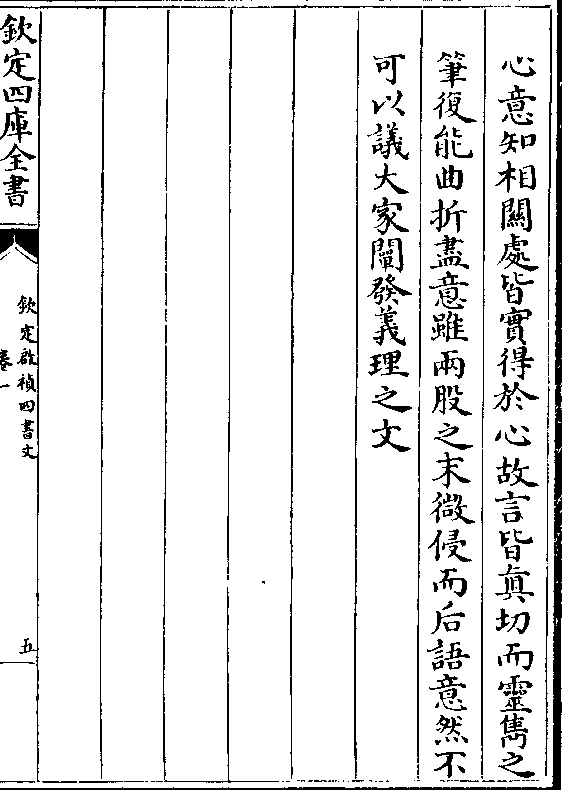 心意知相關處皆實得於心故言皆真切而靈雋之
筆復能曲折盡意雖兩股之末微侵而后語意然不
可以議大家闡發義理之文
欽定四庫全書
欽定啟禎四書文
卷一
五